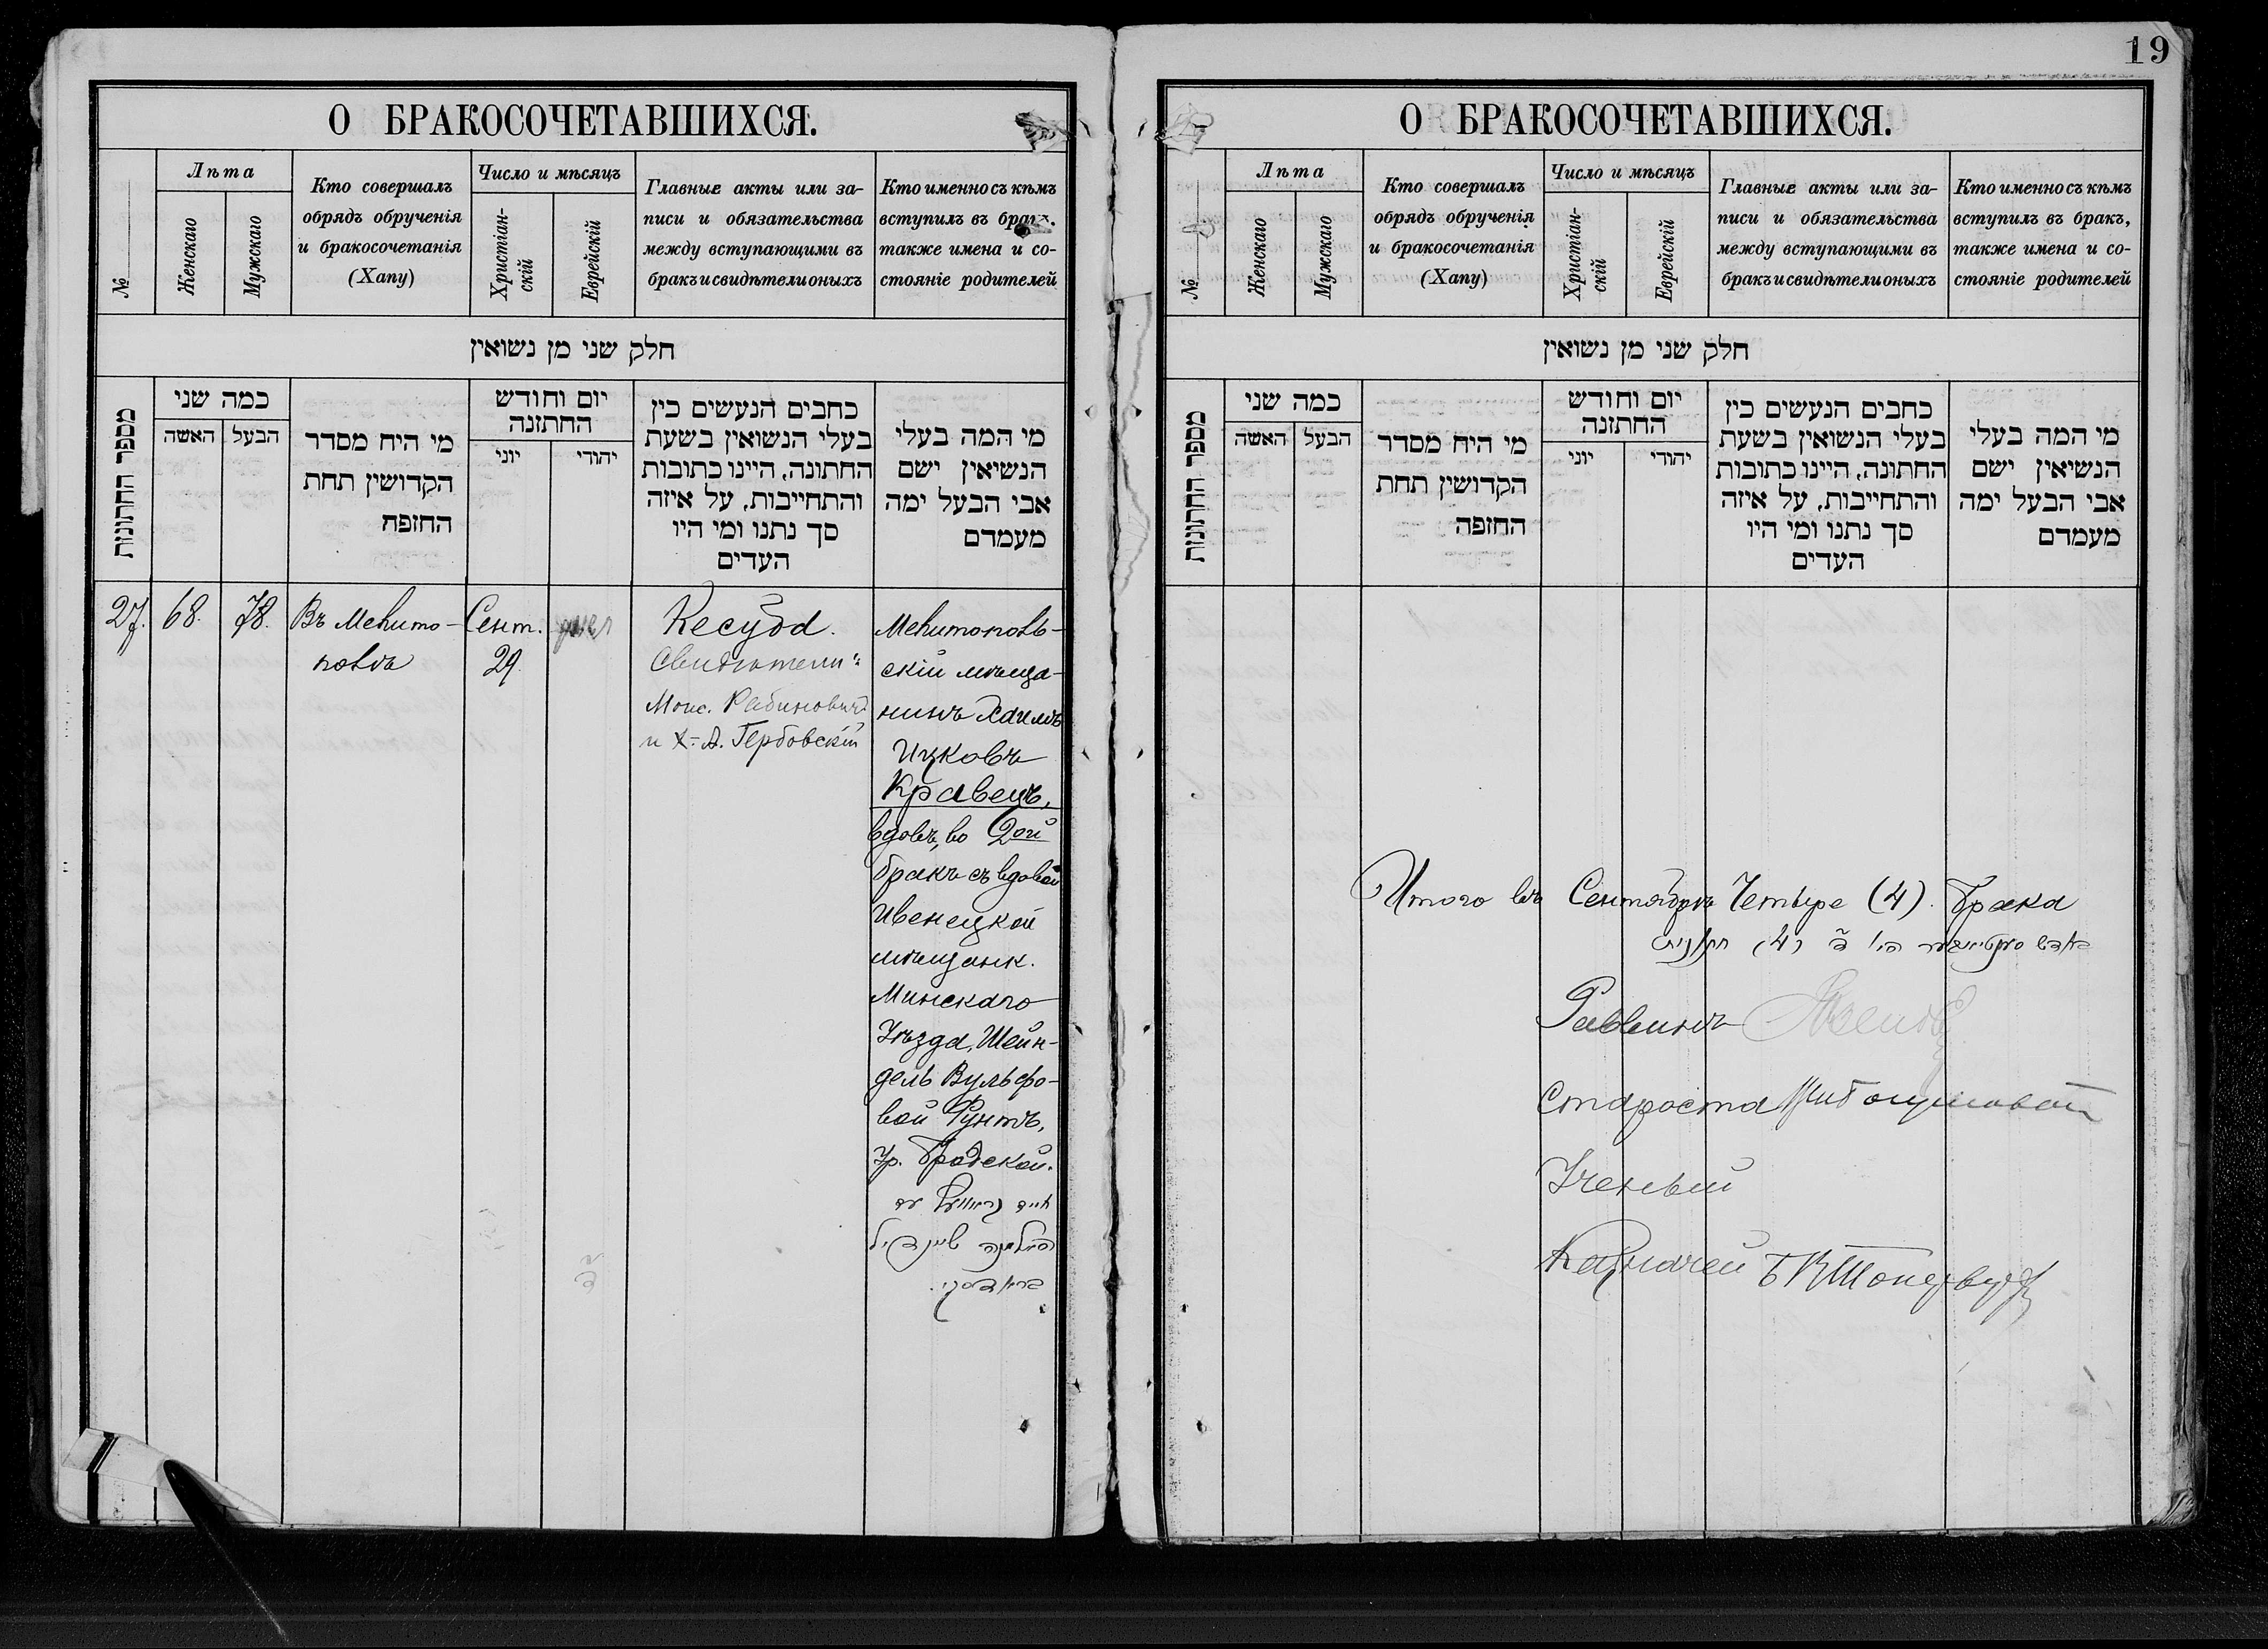 О БРАКОСОЧЕТАВШИХСЯ.
№
Лѣта
Женскаго
Мужскаго
Кто совершалъ
обрядъ обрученія
и бракосочетанія
(Хапу)
Число и мѣсяцъ
Христіан-
скій
Еврейскій
Главные акты или за-
писи и обязательства
между вступающими въ
бракъ и свидѣтели оныхъ
Кто именно съ кѣмъ
вступилъ въ бракъ,
также имена и со-
стояніе родителей
חלק שני מן נשואין
מספר החתונות
כמה שני
האשה
הבעל
מי היח מסדר
הקדושין תחת
החופח
יום וחודש
החתזנה
יוני
יהודי
כחבים הנעשים כין
בעלי הנשואין בשעת
החתונה, היינו כתובות
והתחייבות, על איזה
סך נתנו ומי היו
העדים
מי המה בעלי
הנשיאין ישם
אבי הבעל ימה
מעמדם
27. 68. 78.
Въ Мелито-
полѣ
Сент.
29
Кесуба.
Свидѣтели:
Моис. Рабиновичъ
и Х.-А. Гербовскій
Мелитополь-
скій мѣща-
нинъ Хаимъ
Ицковъ
Кравецъ,
вдовъ, во 2ой
бракъ съ вдовой
Ивенецкой
мѣщанк.
Минскаго
Уѣзда, Шейн-
дель Вульфо-
вой Рунтъ,
ур. Бродской.
19
О БРАКОСОЧЕТАВШИХСЯ.
№
Лѣта
Женскаго
Мужскаго
Кто совершалъ
обрядъ обрученія
и бракосочетанія
(Хапу)
Число и мѣсяцъ
Христіан-
скій
Еврейскій
Главные акты или за-
писи и обязательства
между вступающими въ
бракъ и свидѣтели оныхъ
Кто именно съ кѣмъ
вступилъ въ бракъ,
также имена и со-
стояніе родителей
חלק שני מן נשואין
מספר החתונות
כמה שני
האשה
הבעל
מי היח מסדר
הקדושין תחת
החזפה
יום וחודש
החתזנה
יוני
יהודי
כחבים הנעשים כין
בעלי הנשואין בשעת
החתונה, היינו כתובות
והתחייבות, על איזה
סך נתנו ומי היו
העדים
מי המה בעלי
הנשיאין ישם
אבי הבעל ימה
מעמדם
Итого въ Сентябрѣ Четыре (4) брака
Раввинъ
Староста
Ученый
Казначей